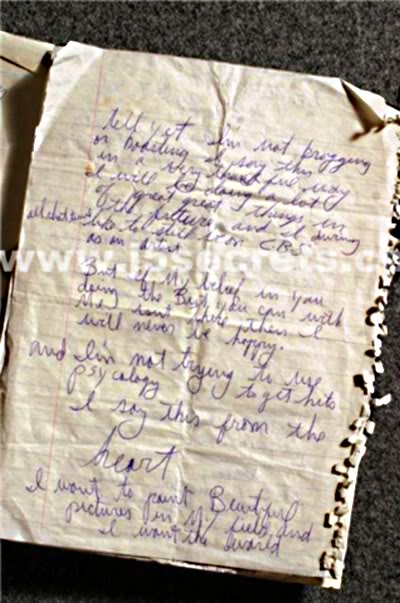 tell ya I'm not bragging
or boasting I say this
in a very thankful way
I will be doing a lot
of great great things in
the future and I during
all that time like to still on CBS
as an artist
But if My belief in you
doing the Best you can with
may isn't there then I
will never be happy.
and I'm not trying to use
psycology to get hits
I say this from the
heart
I want to paint Beutiful
pictures in My field, and
I want the world
www.j5secrets.c